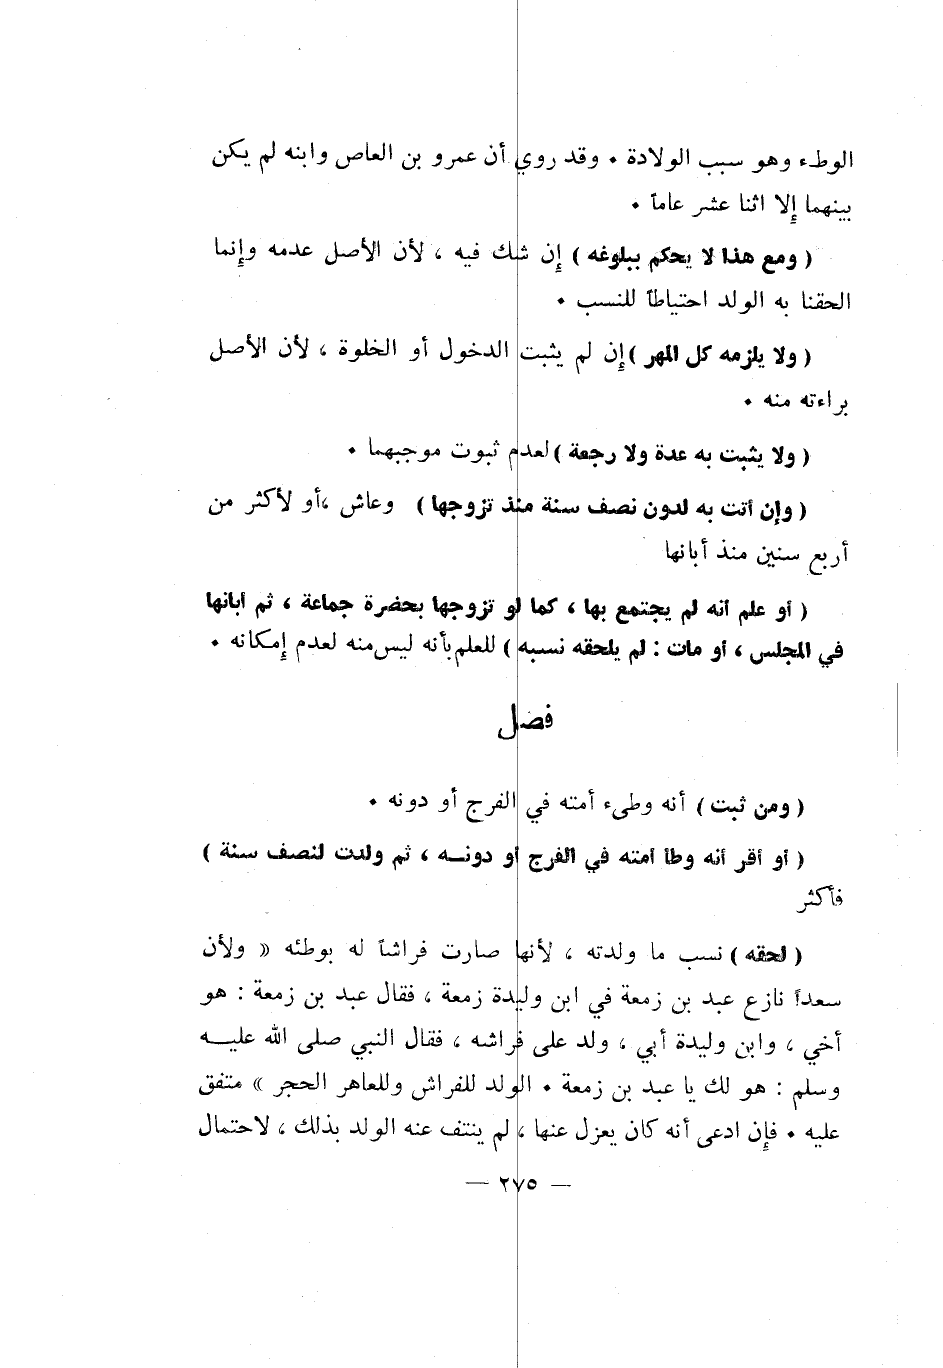 الوطء وهو سبب الولادة • وقد روي أن عمرو بن العاص وابنه لم يكن
بينهما إلا اثنا عشر عاماً •
( ومع هذا لا يحكم ببلوغه ) إن شك فيه ، لأن الأصل عدمه وإنما
الحقنا به الولد احتياطاً للنسب •
( ولا يلزمه كل المهر ) إن لم يثبت الدخول أو الخلوة ، لأن الأصل
براءته منه •
( ولا يثبت به عدة ولا رجعة ) لعدم ثبوت موجبهما •
( وإن أتت به لدون نصف سنة منذ تزوجها ) وعاش ،أو لأكثر من
أربع سنين منذ أبانها
( أو علم أنه لم يجتمع بها ، كما لو تزوجها بحضرة جماعة ، ثم أبانها
في المجلس ، أو مات : لم يلحقه نسبه ) للعلم بأنه ليس منه لعدم إمكانه •
فصل
( ومن ثبت ) أنه وطىء أمته في الفرج أو دونه •
( أو أقر أنه وطأ أمته في الفرج أو دونــه ، ثم ولدت لنصف سنة )
فأكثر
( لحقه ) نسب ما ولدته ، لأنها صارت فراشاً له بوطئه « ولأن
سعداً نازع عبد بن زمعة في ابن وليدة زمعة ، فقال عبد بن زمعة : هو
أخي ، وابن وليدة أبي ، ولد على فراشه ، فقال النبي صلى الله عليــه
وسلم : هو لك يا عبد بن زمعة • الولد للفراش وللعاهر الحجر » متفق
عليه • فإن ادعى أنه كان يعزل عنها ، لم ينتف عنه الولد بذلك ، لاحتمال
— ٢٧٥ —